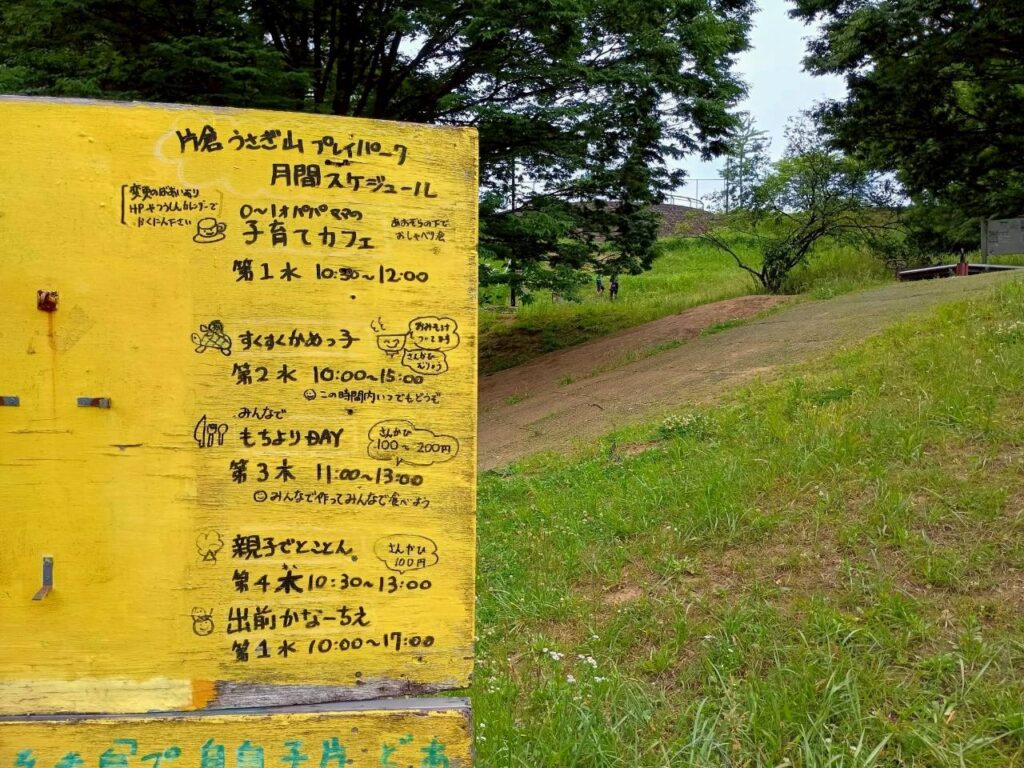 片倉うさぎ山プレイパーク
月間スケジュール
変更のばあいあり
HPやつうしんカレンダーで
かくにん下さい
0〜1才パパママの
子育てカフェ
あおぞらの下で
おしゃべり会
第1水 10:30〜12:00
すくすくかめっ子
おみそ汁
ついてます
さんかひ
むりょう
第2水 10:00〜15:00
この時間内いつでもどうぞ
みんなで
もちよりDAY
さんかひ
100〜200円
第3木 11:00〜13:00
みんなで作ってみんなで食べよう
親子でとことん。
さんかひ
100円
第4木 10:30〜13:00
出前かなーちえ
第1水 10:00〜17:00